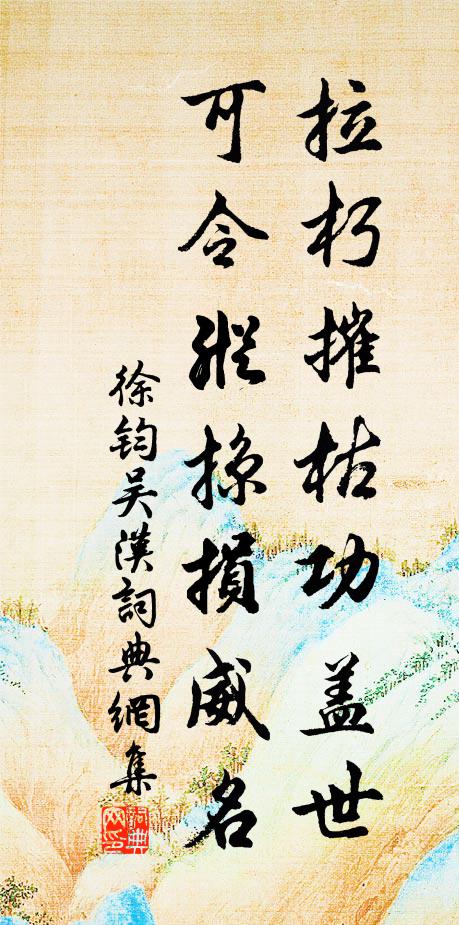 拉朽摧枯功盖世
可令縱掠損威名
徐鈞吴漢詞典網集
詞典網印